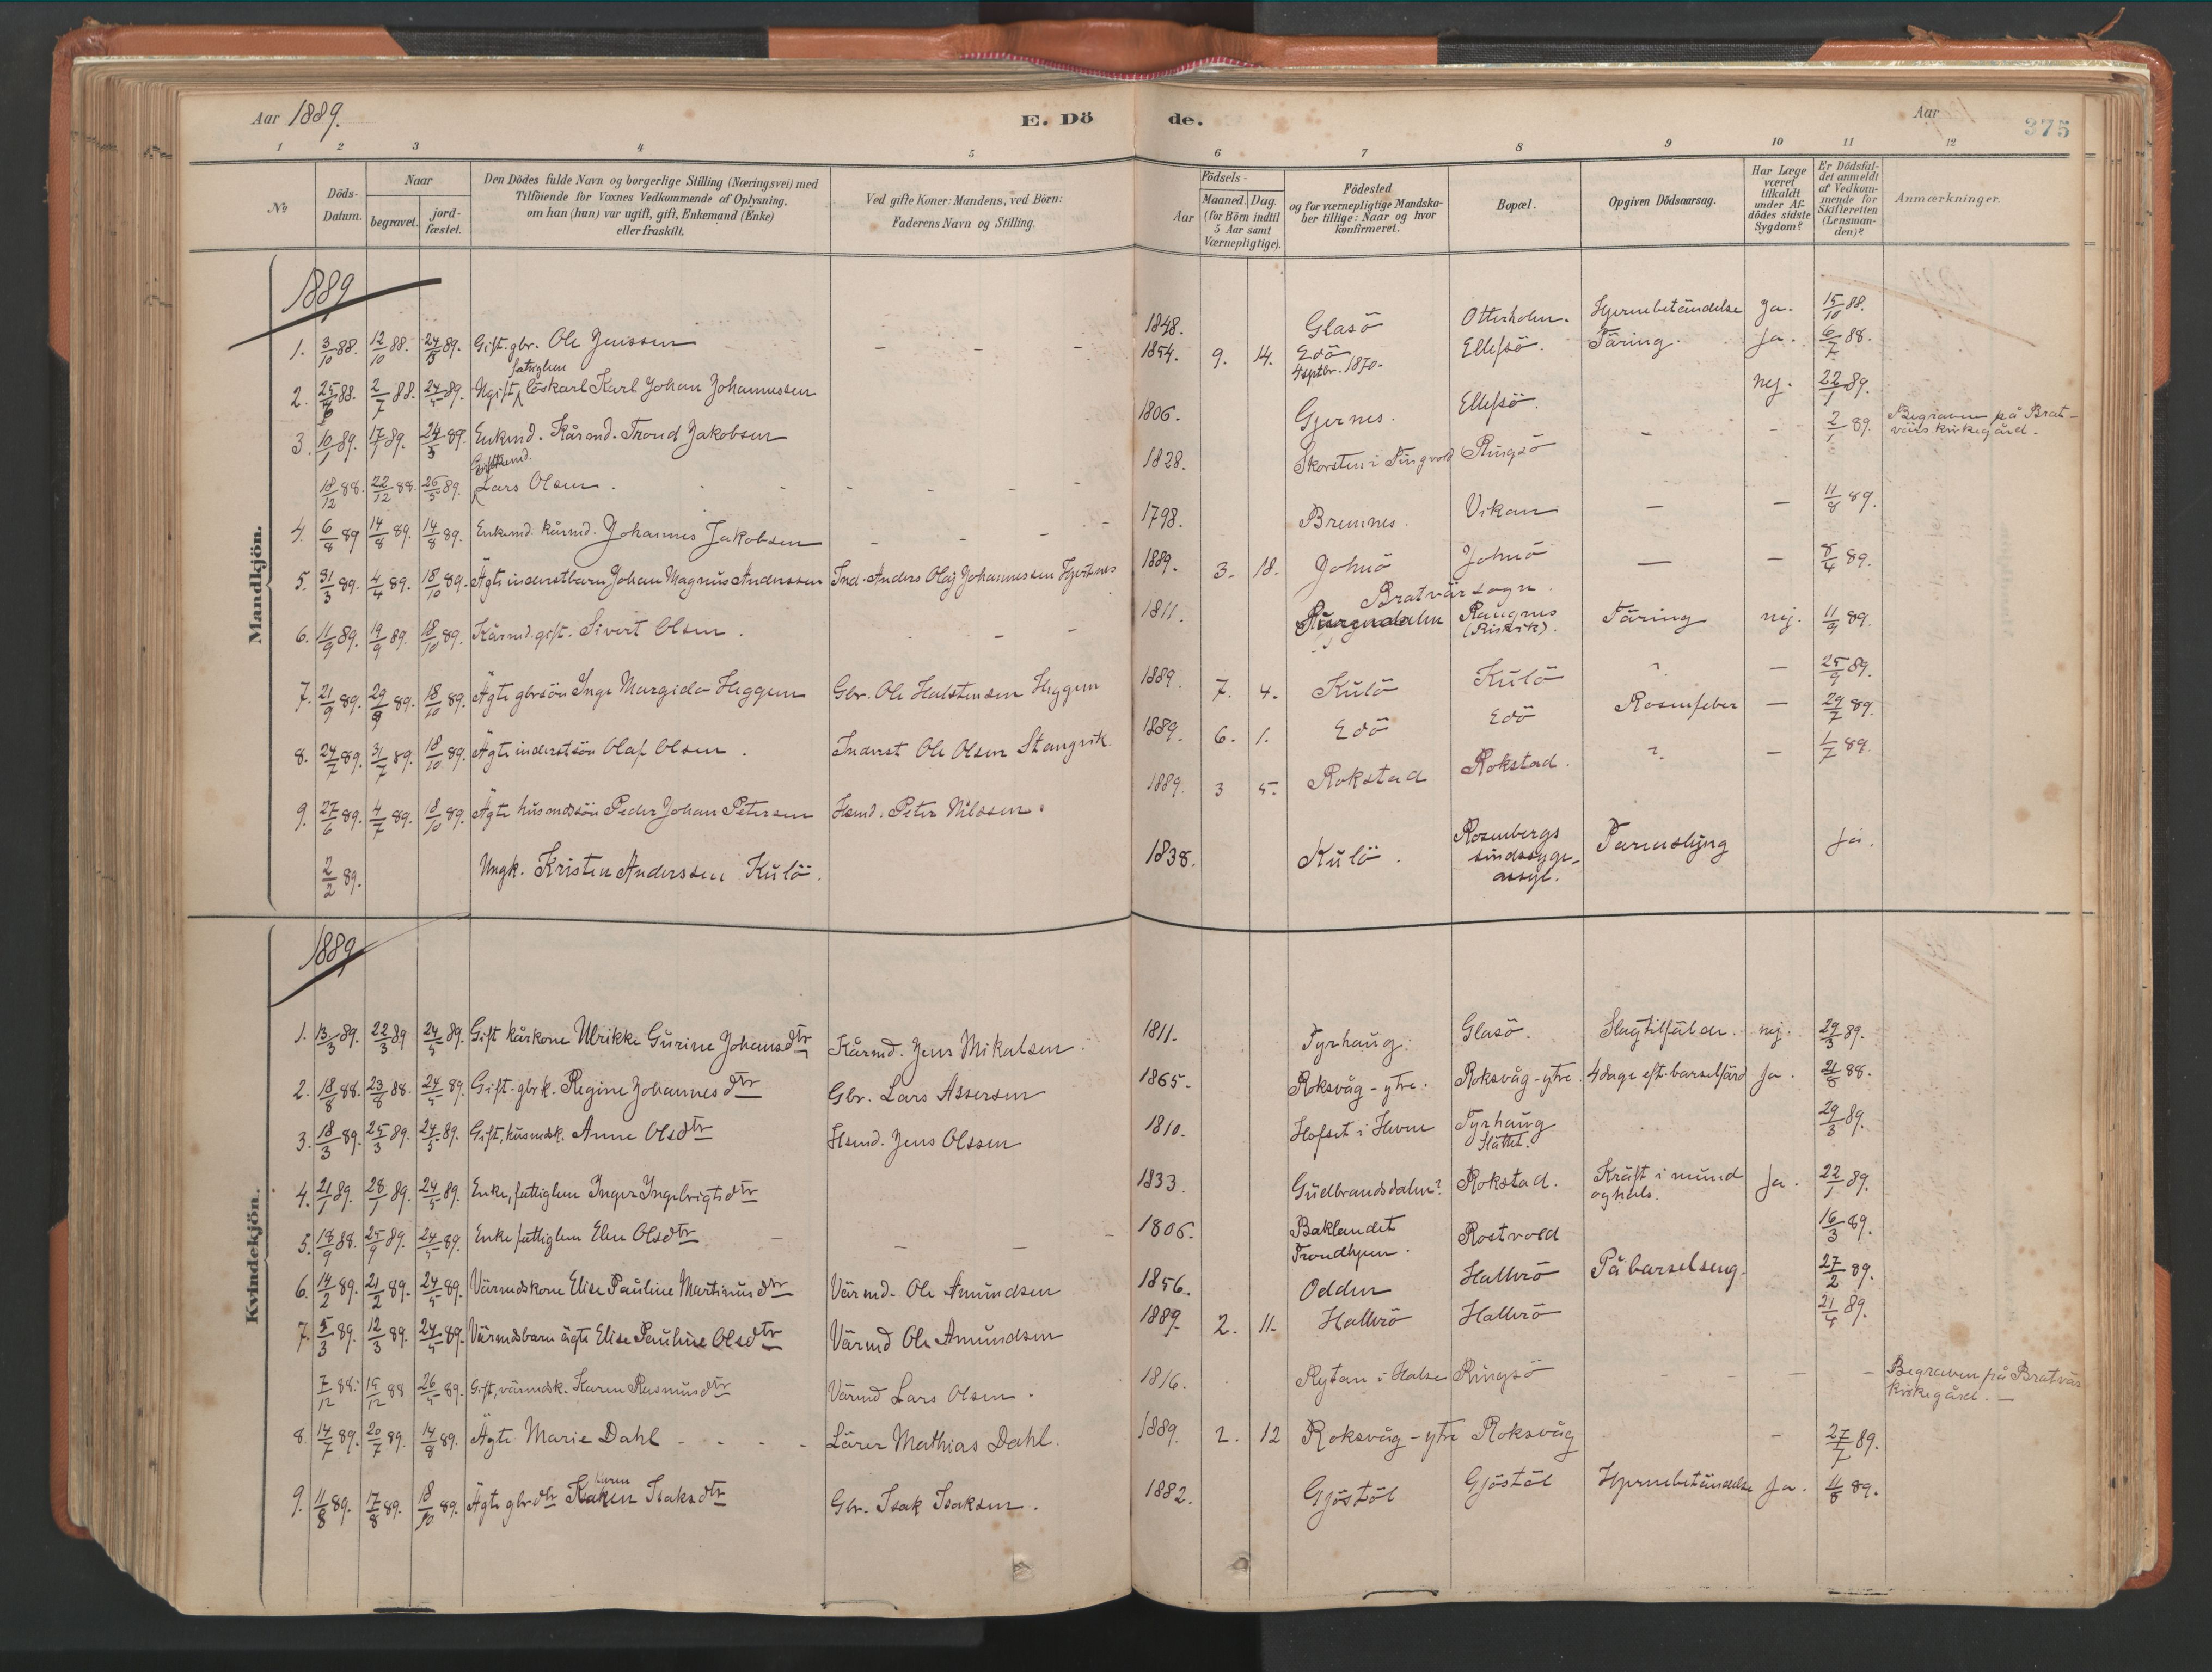 Aar 1889.
E. Döde.
Aar
375
1 2 3 4 5 6 7 8 9 10 11 12
No
Döds-Datum.
Naar
begravet.
jord-fæstet.
Den Dödes fulde Navn og borgerlige Stilling (Næringsvei) med
Tilföiende for Voxnes Vedkommende af Oplysning,
om han (hun) var ugift, gift, Enkemand (Enke)
eller fraskilt.
Ved gifte Koner: Mandens, ved Börn:
Faderens Navn og Stilling.
Födsels-
Aar
Maaned. Dag.
(for Börn indtil
5 Aar samt
Værnepligtige).
Födested
og for værnepligtige Mandska-
ber tillige: Naar og hvor
konfirmeret.
Bopæl.
Opgiven Dödsaarsag.
Har Læge
været
tilkaldt
under Af-
dödes sidste
Sygdom?
Er Dödsfal-
det anmeldt
af Vedkom-
mende for
Skifteretten
(Lensman-
den)?
Anmærkninger.
Mandkjön.
1889
1. 3/10 88. 12/10 88. 24/5 89. Gift. gbr. Ole Jenssen - - - 1848. Glasö Otterholm. Hjernebetändelse Ja. 15/10 88.
2. 25/6 88. 2/7 88. 24/5 89. Ugift fattiglem löskarl Karl Johan Johannessen 1854. 9. 14. Edö 4 septbr. 1870. Ellefsö. Täring. Ja. 6/7 88.
3. 10/1 89. 17/1 89. 24/5 89. Enkmd. Kårmd. Trond Jakobsen 1806. Gjernes. Ellefsö. nej. 22/1 89.
18/12 88. 22/12 88. 26/5 89. Lars Olsen. 1828. Skorsten i Tingvold Ringsö - - 2/1 89. Begraven på Brat-
värs kirkegård.
4. 6/8 89 14/8 89. 14/8 89. Enkemd. kårmd. Johannes Jakobsen - - - 1798. Bremnes. Vikan - - 11/8 89.
5. 31/3 89. 4/4 89. 18/10 89. Ägte inderstbarn Johan Magnus Anderssen Ind. Anders Olaj Johannessen Hjertnes 1889. 3. 18. Johnö Johnö - - 8/4 89.
6. 11/9 89. 19/9 89. 18/10 89. Kårmd. gift. Sivert Olsen. - - 1811. Bratvär sogn. Raugnes (Risvik). Täring nej. 11/9 89.
7. 21/9 89. 29/9 89. 18/10 89. Ägte gbrsön Inge Margido Heggem Gbr. Ole Halstensen Heggem 1889. 7. 4. Kulö Kulö ? - 25/9 89.
8. 24/7 89. 31/7 89. 18/10 89. Ägte inderstsön Olaf Olsen. Inderst Ole Olsen Stangvik. 1889. 6. 1. Edö Edö Rosenfeber - 29/7 89.
9. 27/6 89. 4/7 89. 18/10 89. Ägte husmdssön Peder Johan Petersen Hsmd. Peter Nilssen. 1889. 3 5. Rokstad Rokstad. ? - 1/7 89.
2/2 89. Ungk. Kristen Anderssen Kulö. 1838. Kulö. Rosenbergs
sindssyge-
assyl. Tarmslyng Ja.
Kvindekjön.
1889
1. 13/3 89. 22/3 89 24/5 89. Gift kårkone Ulrikke Gurine Johansdtr Kårmd. Jens Mikalsen. 1811. Tyrhaug. Glasö. Slagtilfälde. nej. 29/3 89.
2. 18/8 88. 23/8 88. 24/5 89. Gift. gbrk. Regine Johannesdtr Gbr. Lars Assersen 1865. Roksvåg-ytre. Roksvåg-ytre. 4 dage eft. barselfärd Ja. 21/8 88.
3. 18/3 89. 25/3 89. 24/5 89. Gift, husmdsk. Anne Olsdtr Hsmd. Jens Olssen 1810. Hofset i Hevne Tyrhaug
Slättet. 29/3 89.
4. 21/1 89. 28/1 89. 24/5 89. Enke, fattiglem Inger Ingebrigtsdtr 1833. Gudbrandsdalen? Rokstad. Kräft i mund
og hals. Ja. 22/1 89.
5. 18/9 88. 25/9 89. 24/5 89. Enke fattiglem Elen Olsdtr - - - 1806. Baklandet
Trondhjem. Rostvold 16/3 89.
6. 14/2 89. 21/2 89. 24/5 89. Värmdskone Elise Pauline Martinusdtr Värmd. Ole Amundsen 1856. Odden Hallerö På barselseng. 27/2 89.
7. 5/3 89. 12/3 89. 24/5 89. Värmdsbarn ägte Elise Pauline Olsdtr Värmd Ole Amundsen 1889. 2. 11. Hallerö Hallerö 21/4 89.
7/12 88. 15/12 88 26/5 89. Gift, värmdsk. Karen Rasmusdtr Värmd Lars Olsen. 1816. Rytan i Halse Ringsö - - - - Begraven på Bratvär
kirkegård. -
8. 14/7 89. 20/7 89. 14/8 89. Ägte Marie Dahl - - - - Lärer Mathias Dahl. 1889. 2. 12 Roksvåg-ytre Roksvåg - 27/7 89.
9. 11/8 89. 17/8 89. 18/10 89. Ägte gbrdtr Karen Isaksdtr Gbr. Isak Isaksen. 1882. Gjöstöl Gjöstöl Hjernebetändelse Ja. 11/8 89.